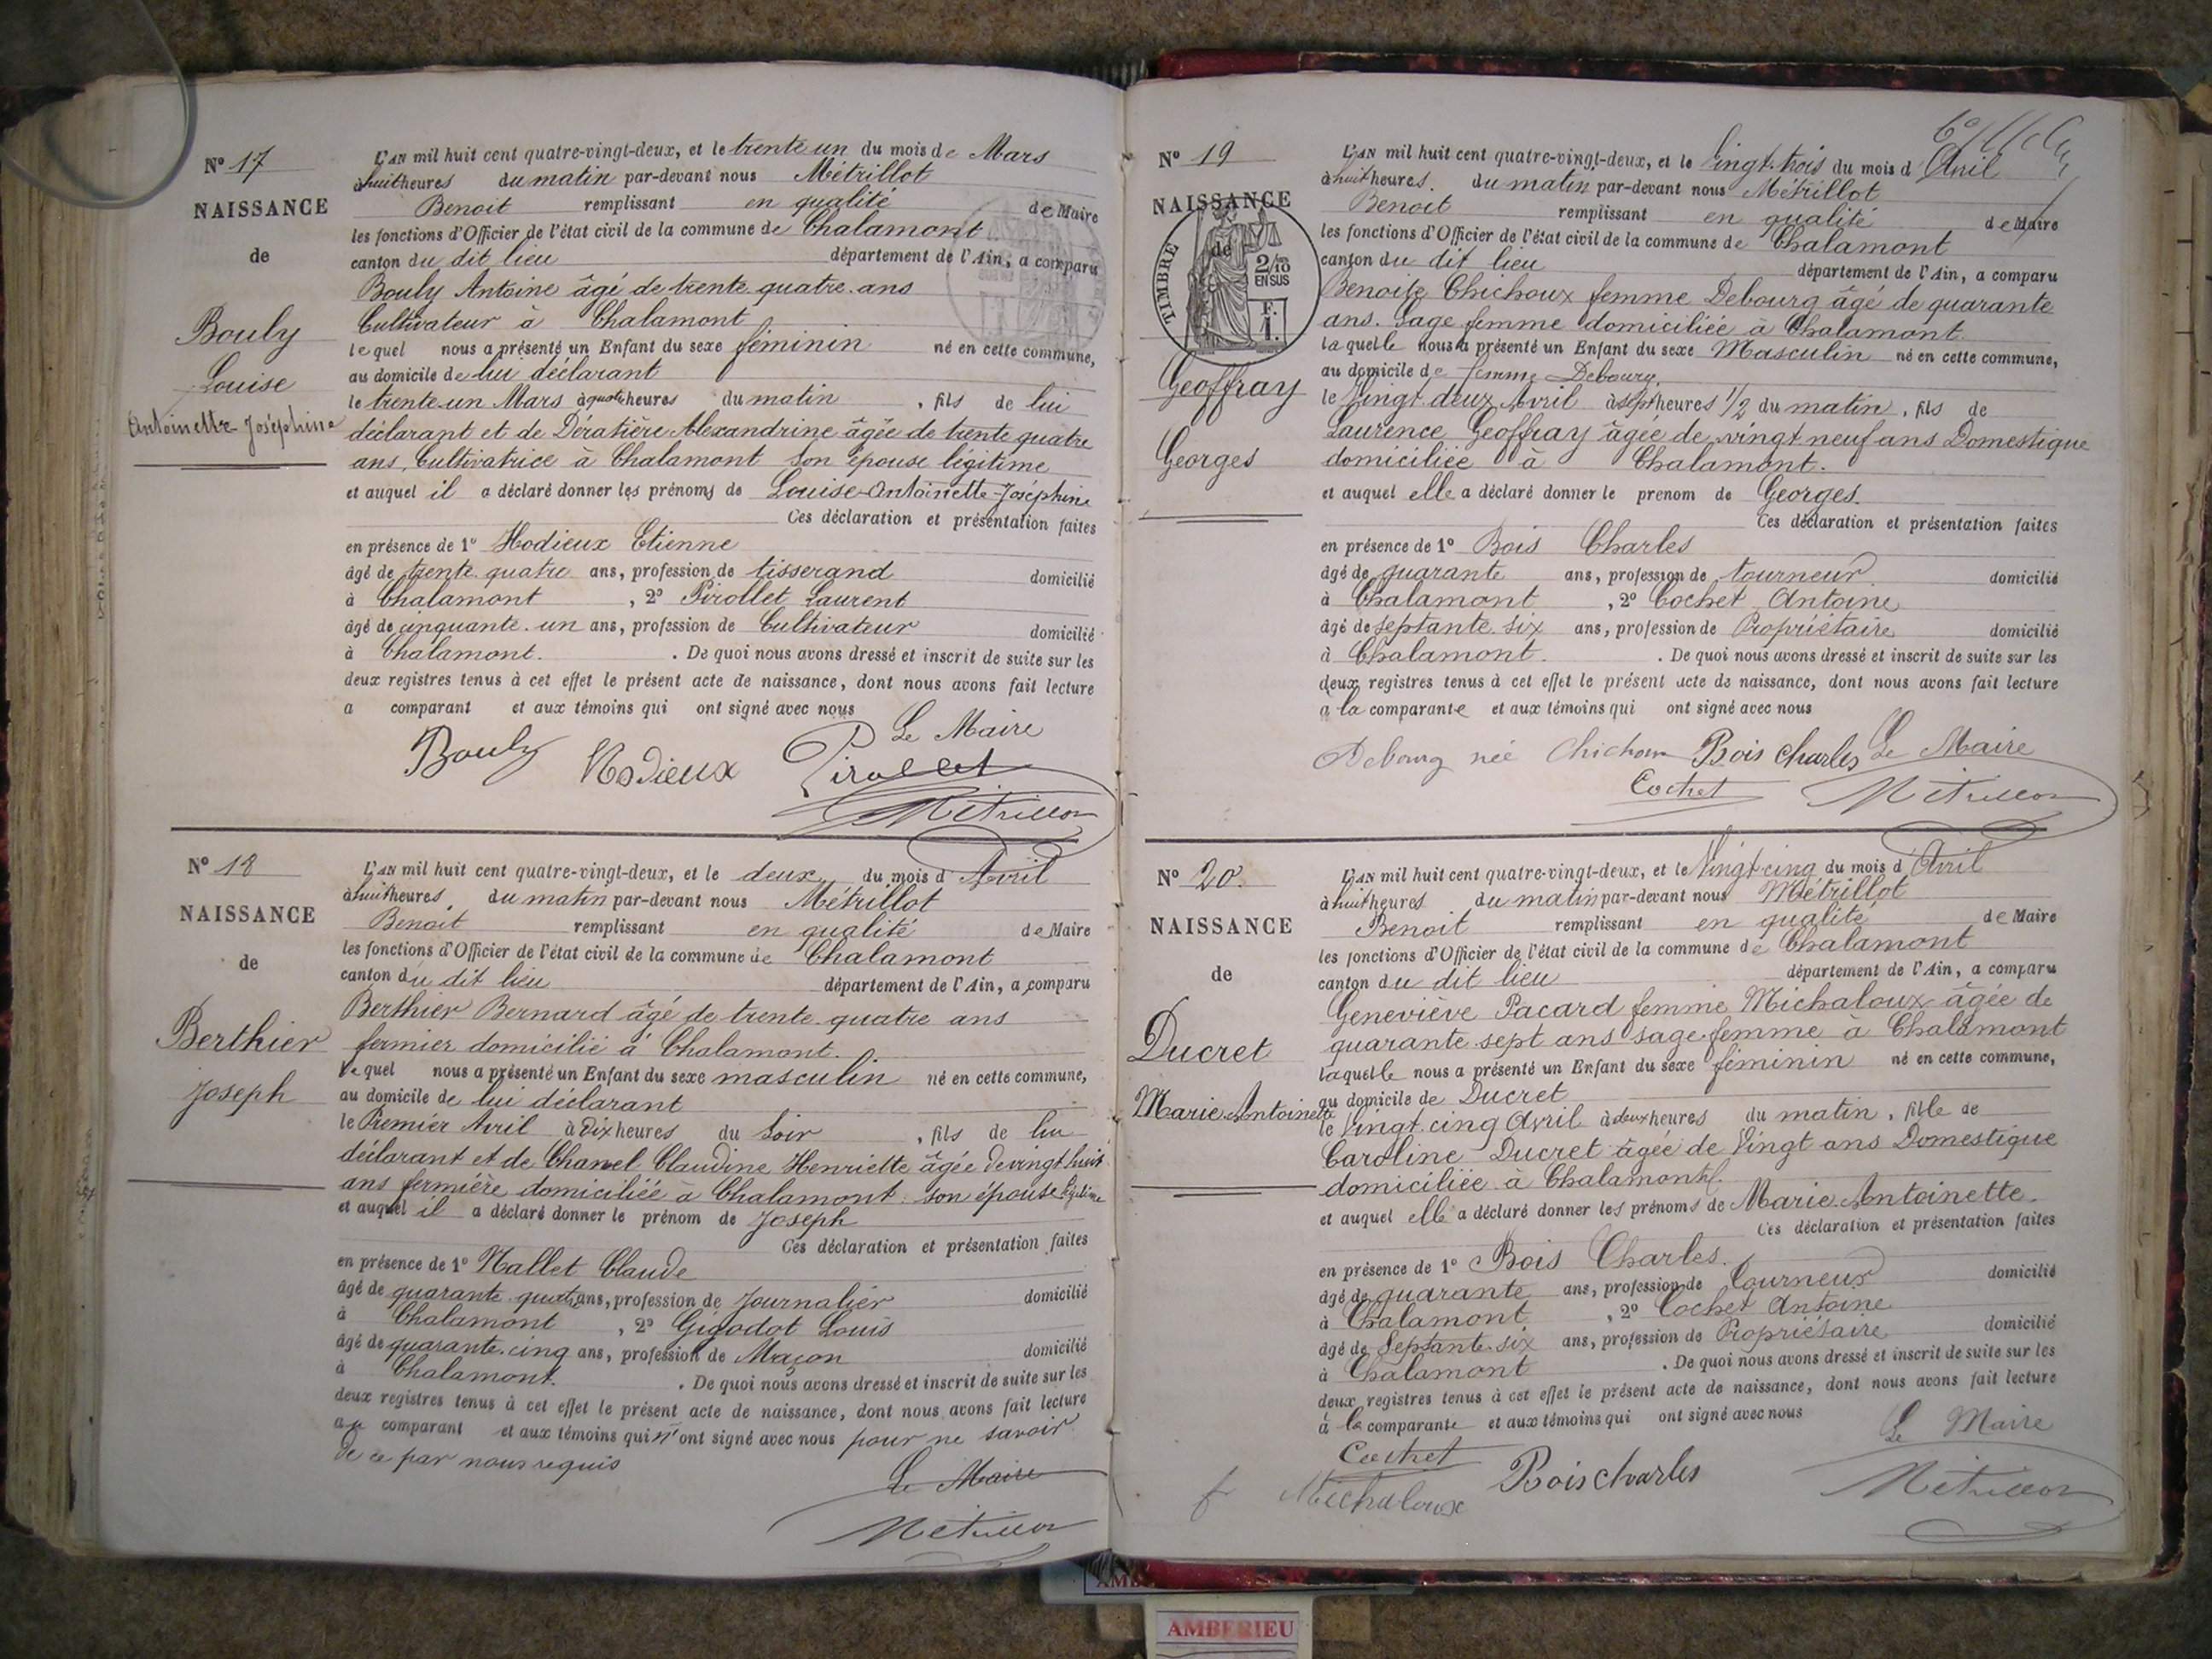 N° 17
NAISSANCE
de
Bouly
Louise
Antoinette Joséphine
L'AN mil huit cent quatre-vingt-deux, et le trente un du mois de Mars
à huit heures du matin par-devant nous Métrillot
Benoit remplissant en qualité de Maire
les fonctions d'Officier de l'état civil de la commune de Chalamont
canton du dit lieu département de l'Ain, a comparu
Bouly Antoine âgé de trente quatre ans
Cultivateur à Chalamont
lequel nous a présenté un Enfant du sexe féminin né en cette commune,
au domicile de lui déclarant
le trente-un Mars à quatre heures du matin, fils de lui
déclarant et de Dératière Alexandrine âgée de trente quatre
ans, Cultivatrice à Chalamont son épouse légitime
et auquel il a déclaré donner les prénoms de Louise-Antoinette-Joséphine
Ces déclaration et présentation faites
en présence de 1° Hodieux Etienne
âgé de trente quatre ans, profession de tisserand domicilié
à Chalamont, 2° Pirollet Laurent
âgé de cinquante un ans, profession de Cultivateur domicilié
à Chalamont. De quoi nous avons dressé et inscrit de suite sur les
deux registres tenus à cet effet le présent acte de naissance, dont nous avons fait lecture
a comparant et aux témoins qui ont signé avec nous
Le Maire
Bouly Hodieux Pirollet
Métrillot
N° 18
NAISSANCE
de
Berthier
Joseph
L'AN mil huit cent quatre-vingt-deux, et le deux du mois d'Avril
à huit heures du matin par-devant nous Métrillot
Benoit remplissant en qualité de Maire
les fonctions d'Officier de l'état civil de la commune de Chalamont
canton du dit lieu département de l'Ain, a comparu
Berthier Bernard âgé de trente quatre ans
fermier domicilié à Chalamont.
lequel nous a présenté un Enfant du sexe masculin né en cette commune,
au domicile de lui déclarant
le Premier Avril à dix heures du soir, fils de lui
déclarant et de Chanel Claudine Henriette âgée de vingt huit
ans fermière domiciliée à Chalamont son épouse légitime
et auquel il a déclaré donner le prénom de Joseph
Ces déclaration et présentation faites
en présence de 1° Nallet Claude
âgé de quarante quatre ans, profession de Journalier domicilié
à Chalamont, 2° Gigodot Louis
âgé de quarante cinq ans, profession de Maçon domicilié
à Chalamont. De quoi nous avons dressé et inscrit de suite sur les
deux registres tenus à cet effet le présent acte de naissance, dont nous avons fait lecture
au comparant et aux témoins qui n'ont signé avec nous pour ne savoir
de ce par nous requis
Le Maire
Métrillot
N° 19
NAISSANCE
de
TIMBRE
2/10
EN SUS
F.
1.
Geoffray
Georges
L'AN mil huit cent quatre-vingt-deux, et le Vingt-trois du mois d'Avril
à huit heures. du matin par-devant nous Métrillot
Benoit remplissant en qualité de Maire
les fonctions d'Officier de l'état civil de la commune de Chalamont
canton du dit lieu département de l'Ain, a comparu
Benoite Chichoux femme Debourg âgé de quarante
ans. Sage femme domiciliée à Chalamont
laquelle nous a présenté un Enfant du sexe Masculin né en cette commune,
au domicile de femme Debourg.
le Vingt-deux Avril à sept heures 1/2 du matin, fils de
Laurence Geoffray âgée de vingt neuf ans Domestique
domiciliée à Chalamont.
et auquel elle a déclaré donner le prenom de Georges.
Ces déclaration et présentation faites
en présence de 1° Bois Charles
âgé de quarante ans, profession de tourneur domicilié
à Chalamont, 2° Cochet Antoine
âgé de septante six ans, profession de Propriétaire domicilié
à Chalamont. De quoi nous avons dressé et inscrit de suite sur les
deux registres tenus à cet effet le présent acte de naissance, dont nous avons fait lecture
à la comparante et aux témoins qui ont signé avec nous
Debourg née Chichoux Bois Charles Le Maire
Cochet Métrillot
N° 20.
NAISSANCE
de
Ducret
Marie Antoinette
L'AN mil huit cent quatre-vingt-deux, et le Vingt-cinq du mois d'Avril
à huit heures du matin par-devant nous Métrillot
Benoit remplissant en qualité de Maire
les fonctions d'Officier de l'état civil de la commune de Chalamont
canton du dit lieu département de l'Ain, a comparu
Geneviève Pacard femme Michaloux âgée de
quarante sept ans sage-femme à Chalamont
laquelle nous a présenté un Enfant du sexe féminin né en cette commune,
au domicile de Ducret
le Vingt cinq Avril à deux heures du matin, fille de
Caroline Ducret âgée de Vingt ans Domestique
domiciliée à Chalamont.
et auquel elle a déclaré donner les prénoms de Marie-Antoinette.
Ces déclaration et présentation faites
en présence de 1° Bois Charles.
âgé de quarante ans, profession de Tourneur domicilié
à Chalamont, 2° Cochet Antoine
âgé de Septante six ans, profession de Propriétaire domicilié
à Chalamont. De quoi nous avons dressé et inscrit de suite sur les
deux registres tenus à cet effet le présent acte de naissance, dont nous avons fait lecture
à la comparante et aux témoins qui ont signé avec nous
Le Maire
Cochet
f Michaloux Bois Charles Métrillot
AMBERIEU